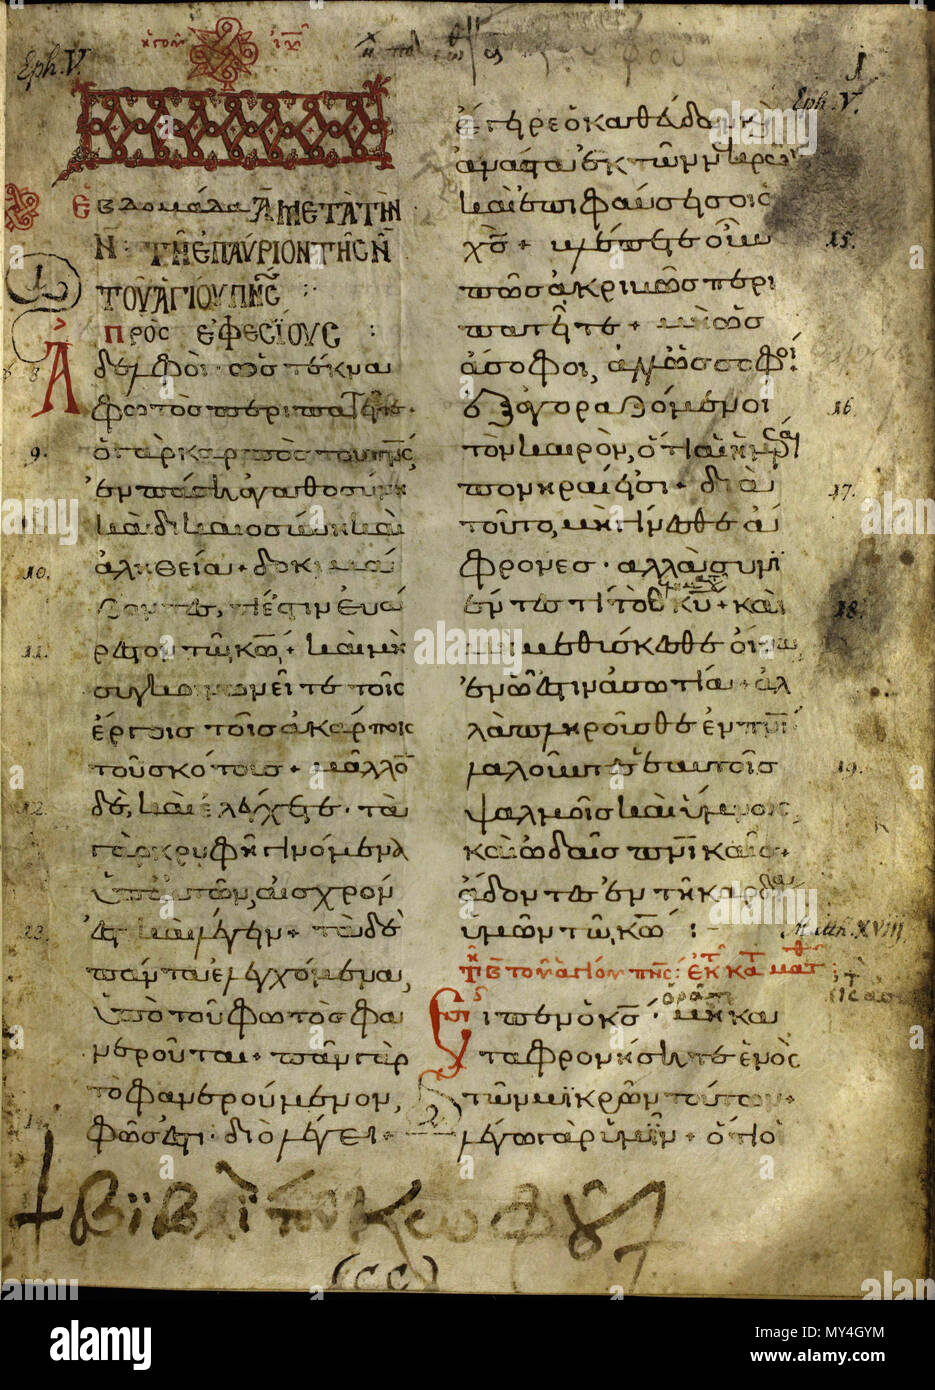 Eph. V.
1
Eph. V.
Ἑβδομάδα Ᾱ ΜΕΤᾺ ΤῊΝ
Ν̄ · ΤΗ͂ ἘΠΑΎΡΙΟΝ ΤΗ͂C Ν̄
ΤΟΥ͂ ἉΓΊΟΥ ΠΝC
πρὸς ἐφεσίους :
Ἀδελφοὶ· ὡς τέκνα
φωτὸς περιπατεῖτε·
9. ὁ γὰρ καρπὸς τοῦ πνς,
ἐν πάσῃ ἀγαθοσύνη
καὶ δικαιοσύνη καὶ
10. ἀληθεία + δοκιμά
ζοντες, τί ἐστιν εὐά
11. ρεστον τῶ κω, + καὶ μὴ
συγκοινωνεῖτε τοῖς
ἔργοις τοῖς ἀκάρποις
τοῦ σκότους + μᾶλλο
12. δὲ, καὶ ἐλέγχετε· τὰ
γὰρ κρυφῆ γινόμενα
ὑπ' αὐτῶν, αἰσχρόν
13. ἐστι καὶ λέγειν + τὰ δὲ
πάντα ἐλεγχόμενα,
ὑπὸ τοῦ φωτὸς φα
νεροῦται + πᾶν γὰρ
τὸ φανερούμενον,
φῶς ἐστι· διὸ λέγει +
ἔγειρε ὁ καθεύδων κὶ
ἀνάστα ἐκ τῶν νεκρῶν
καὶ ἐπιφαύσει σοι ὁ
15. χς + βλέπετε οὖν
πῶς ἀκριβῶς περι
πατεῖτε + μὴ ὡς
ἄσοφοι, ἀλλ' ὡς σοφοί
16. ἐξαγοραζόμενοι
τὸν καιρὸν, ὅτι αἱ ἡμέραι
17. πονηραί εἰσι + διὰ
τοῦτο, μὴ γίνεσθε ἄ
φρονες · ἀλλὰ συνϊ
18. έντες τί τὸ θέλημα τοῦ κυ + καὶ
μὴ μεθύσκεσθε οἴνω,
ἐν ὧ ἐστιν ἀσωτία + ἀλ
λὰ πληροῦσθε ἐν πνϊ
19. λαλοῦντες ἑαυτοῖς
ψαλμοῖς καὶ ὕμνοις,
καὶ ὠδαῖς πνικαῖς +
ἄδοντες ἐν τῆ καρδία
ὑμῶν τῶ κω :
Matth. XVIII
τοῦ ἁγίου πνς : ἐκ κατ ματθ
Εἶπεν ὁ κς · ὁρᾶτε μὴ κα
ταφρονήσητε ἑνὸς
τῶν μϊκρῶν τούτων +
λέγω γὰρ ὑμῖν + ὅτι οἱ
(CC)
alamy
Image ID: MY4GYM
www.alamy.com